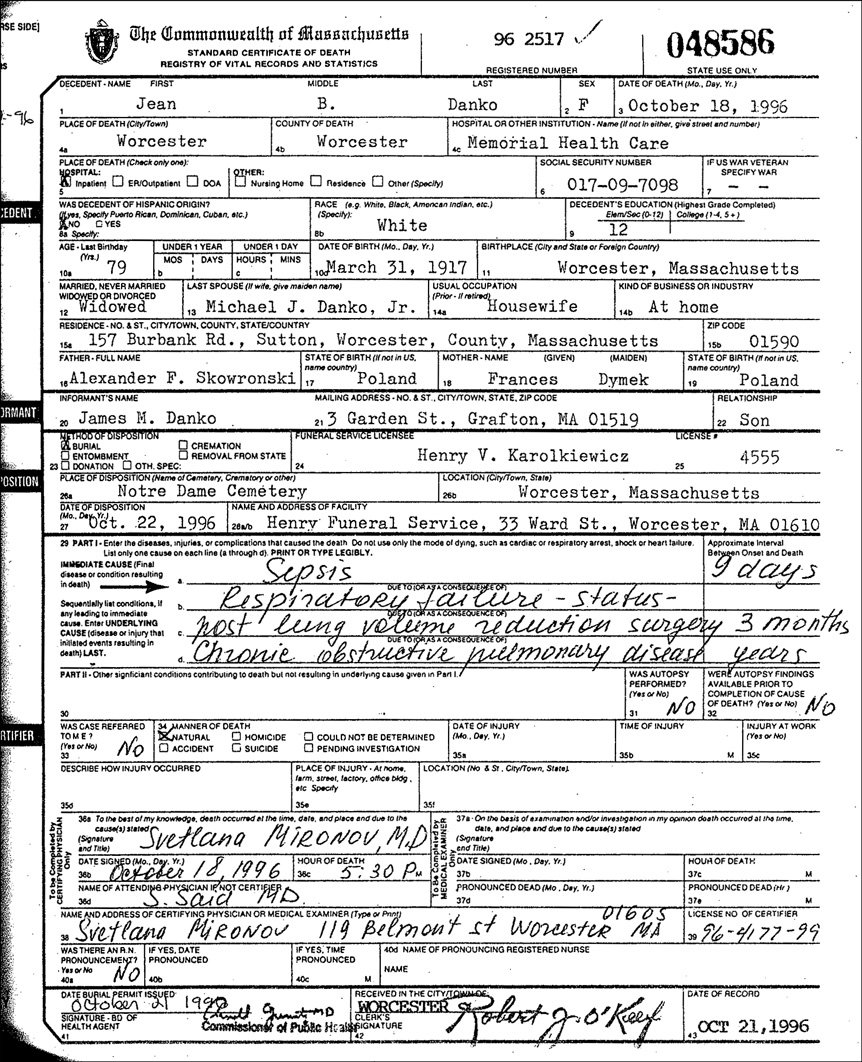 RSE SIDE]
The Commonwealth of Massachusetts
STANDARD CERTIFICATE OF DEATH
REGISTRY OF VITAL RECORDS AND STATISTICS
96 2517 ✓
REGISTERED NUMBER
048586
STATE USE ONLY
DECEDENT - NAME FIRST MIDDLE LAST SEX DATE OF DEATH (Mo., Day, Yr.)
1 Jean B. Danko 2 F 3 October 18, 1996
PLACE OF DEATH (City/Town) COUNTY OF DEATH HOSPITAL OR OTHER INSTITUTION - Name (If not in either, give street and number)
4a Worcester 4b Worcester 4c Memorial Health Care
PLACE OF DEATH (Check only one): SOCIAL SECURITY NUMBER IF US WAR VETERAN
HOSPITAL: OTHER: SPECIFY WAR
☒ Inpatient ☐ ER/Outpatient ☐ DOA ☐ Nursing Home ☐ Residence ☐ Other (Specify)
5 6 017-09-7098 7 - -
CEDENT
WAS DECEDENT OF HISPANIC ORIGIN? RACE (e.g. White, Black, American Indian, etc.) DECEDENT'S EDUCATION (Highest Grade Completed)
(If yes, Specify Puerto Rican, Dominican, Cuban, etc.) (Specify): Elem/Sec (0-12) College (1-4, 5+)
☒ NO ☐ YES
8a Specify: 8b White 9 12
AGE - Last Birthday UNDER 1 YEAR UNDER 1 DAY DATE OF BIRTH (Mo., Day, Yr.) BIRTHPLACE (City and State or Foreign Country)
(Yrs.) MOS DAYS HOURS MINS
10a 79 b c 10d March 31, 1917 11 Worcester, Massachusetts
MARRIED, NEVER MARRIED LAST SPOUSE (If wife, give maiden name) USUAL OCCUPATION KIND OF BUSINESS OR INDUSTRY
WIDOWED OR DIVORCED (Prior - If retired)
12 Widowed 13 Michael J. Danko, Jr. 14a Housewife 14b At home
RESIDENCE - NO. & ST., CITY/TOWN, COUNTY, STATE/COUNTRY ZIP CODE
15a 157 Burbank Rd., Sutton, Worcester, County, Massachusetts 15b 01590
FATHER - FULL NAME STATE OF BIRTH (If not in US, name country) MOTHER - NAME (GIVEN) (MAIDEN) STATE OF BIRTH (If not in US, name country)
16 Alexander F. Skowronski 17 Poland 18 Frances Dymek 19 Poland
ORMANT
INFORMANT'S NAME MAILING ADDRESS - NO. & ST., CITY/TOWN, STATE, ZIP CODE RELATIONSHIP
20 James M. Danko 21 3 Garden St., Grafton, MA 01519 22 Son
METHOD OF DISPOSITION FUNERAL SERVICE LICENSEE LICENSE #
☒ BURIAL ☐ CREMATION
☐ ENTOMBMENT ☐ REMOVAL FROM STATE
23 ☐ DONATION ☐ OTH. SPEC: 24 Henry V. Karolkiewicz 25 4555
POSITION
PLACE OF DISPOSITION (Name of Cemetery, Crematory or other) LOCATION (City/Town, State)
26a Notre Dame Cemetery 26b Worcester, Massachusetts
DATE OF DISPOSITION NAME AND ADDRESS OF FACILITY
(Mo., Day, Yr.)
27 Oct. 22, 1996 28a/b Henry Funeral Service, 33 Ward St., Worcester, MA 01610
29 PART I - Enter the diseases, injuries, or complications that caused the death. Do not use only the mode of dying, such as cardiac or respiratory arrest, shock or heart failure. Approximate Interval
List only one cause on each line (a through d). PRINT OR TYPE LEGIBLY. Between Onset and Death
IMMEDIATE CAUSE (Final disease or condition resulting in death)
a. Sepsis 9 days
DUE TO (OR AS A CONSEQUENCE OF)
Sequentially list conditions, if any leading to immediate cause. Enter UNDERLYING CAUSE (disease or injury that initiated events resulting in death) LAST.
b. Respiratory failure - status -
DUE TO (OR AS A CONSEQUENCE OF)
c. post lung volume reduction surgery 3 months
DUE TO (OR AS A CONSEQUENCE OF)
d. Chronic obstructive pulmonary disease years
PART II - Other significant conditions contributing to death but not resulting in underlying cause given in Part I. WAS AUTOPSY PERFORMED? (Yes or No) WERE AUTOPSY FINDINGS AVAILABLE PRIOR TO COMPLETION OF CAUSE OF DEATH? (Yes or No)
30 31 No 32 No
RTIFIER
WAS CASE REFERRED TO M E ? 34 MANNER OF DEATH DATE OF INJURY TIME OF INJURY INJURY AT WORK
(Yes or No) ☒ NATURAL ☐ HOMICIDE ☐ COULD NOT BE DETERMINED (Mo., Day, Yr.) (Yes or No)
33 No ☐ ACCIDENT ☐ SUICIDE ☐ PENDING INVESTIGATION 35a 35b M 35c
DESCRIBE HOW INJURY OCCURRED PLACE OF INJURY - At home, farm, street, factory, office bldg, etc Specify LOCATION (No & St, City/Town, State).
35d 35e 35f
To be Completed by CERTIFYING PHYSICIAN Only
36a To the best of my knowledge, death occurred at the time, date, and place and due to the cause(s) stated
(Signature and Title) Svetlana MIRONOV, M.D
To be Completed by MEDICAL EXAMINER Only
37a On the basis of examination and/or investigation in my opinion death occurred at the time, date, and place and due to the cause(s) stated
(Signature and Title)
DATE SIGNED (Mo., Day, Yr.) HOUR OF DEATH DATE SIGNED (Mo, Day, Yr.) HOUR OF DEATH
36b October 18, 1996 36c 5:30 P M 37b 37c M
NAME OF ATTENDING PHYSICIAN IF NOT CERTIFIER PRONOUNCED DEAD (Mo, Day, Yr.) PRONOUNCED DEAD (Hr)
36d S. Said MD. 37d 37e M
NAME AND ADDRESS OF CERTIFYING PHYSICIAN OR MEDICAL EXAMINER (Type or Print) LICENSE NO. OF CERTIFIER
38 Svetlana MIRONOV 119 Belmont st Worcester MA 01605 39 96-4177-99
WAS THERE AN R.N. PRONOUNCEMENT? IF YES, DATE PRONOUNCED IF YES, TIME PRONOUNCED 40d NAME OF PRONOUNCING REGISTERED NURSE
Yes or No NAME
40a No 40b 40c M
DATE BURIAL PERMIT ISSUED RECEIVED IN THE CITY/TOWN OF DATE OF RECORD
October 21 1996 WORCESTER
SIGNATURE - BD OF HEALTH AGENT Commissioner of Public Health CLERK'S SIGNATURE Robert J. O'Keef
41 42 43 OCT 21, 1996